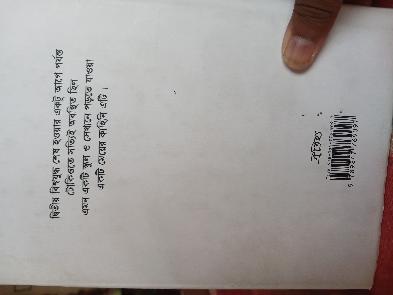 দ্বিতীয় বিশ্বযুদ্ধ শেষ হওয়ার একটু আগে পর্যন্ত
টোকিওতে সত্যিই অবস্থিত ছিল
এমন একটি স্কুল ও সেখানে পড়তে যাওয়া
একটি মেয়ের কাহিনি এটি।
ঐতিহ্য